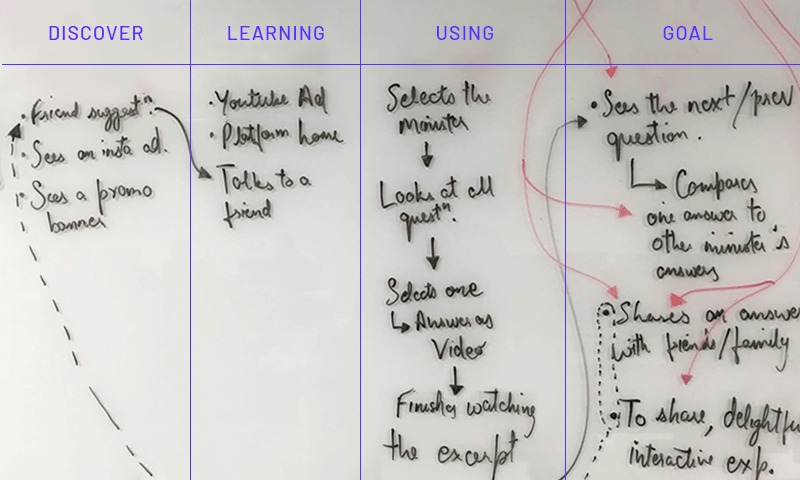 DISCOVER
LEARNING
USING
GOAL
• Friend suggestⁿ.
• Sees an insta ad.
• Sees a promo
banner
• Youtube Ad
• Platform home
• Talks to a
friend
Selects the
minister
Looks at all
questⁿ.
Selects one
Answer as
Video
Finishes watching
the excerpt
• Sees the next/prev
question.
Compares
one answer to
other minister's
answers
• Shares an answe
with friends/family
• To share, delightfu
interactive exp.